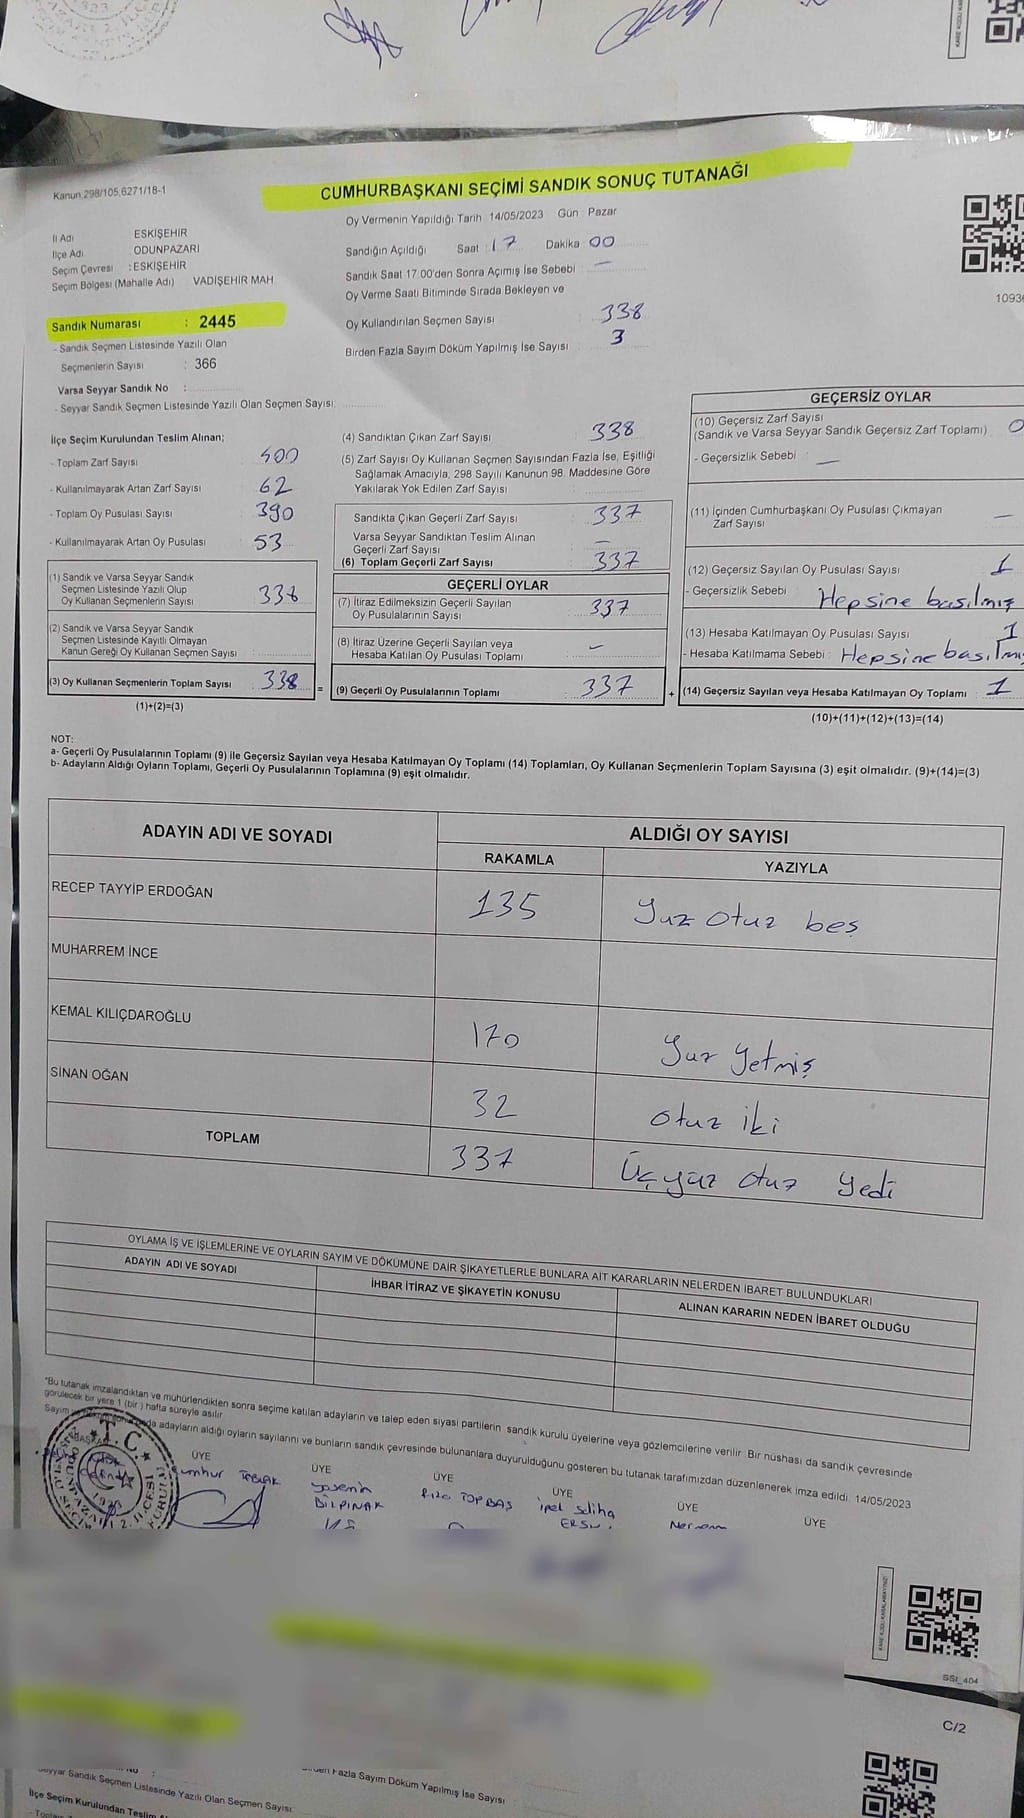 Kanun.298/105,6271/18-1
CUMHURBAŞKANI SEÇİMİ SANDIK SONUÇ TUTANAĞI
Oy Vermenin Yapıldığı Tarih 14/05/2023 Gün : Pazar
İl Adı ESKİŞEHİR
İlçe Adı ODUNPAZARI
Seçim Çevresi : ESKİŞEHİR
Seçim Bölgesi (Mahalle Adı) VADİŞEHİR MAH
Sandığın Açıldığı Saat : 17 Dakika 00
Sandık Saat 17:00'den Sonra Açımış İse Sebebi : —
Oy Verme Saati Bitiminde Sırada Bekleyen ve
Oy Kullandırılan Seçmen Sayısı : 338
Birden Fazla Sayım Döküm Yapılmış İse Sayısı : 3
10936
Sandık Numarası : 2445
- Sandık Seçmen Listesinde Yazılı Olan
Seçmenlerin Sayısı : 366
Varsa Seyyar Sandık No :
- Seyyar Sandık Seçmen Listesinde Yazılı Olan Seçmen Sayısı:
İlçe Seçim Kurulundan Teslim Alınan;
- Toplam Zarf Sayısı 400
- Kullanılmayarak Artan Zarf Sayısı 62
- Toplam Oy Pusulası Sayısı 390
- Kullanılmayarak Artan Oy Pusulası 53
(1) Sandık ve Varsa Seyyar Sandık
Seçmen Listesinde Yazılı Olup
Oy Kullanan Seçmenlerin Sayısı 338
(2) Sandık ve Varsa Seyyar Sandık
Seçmen Listesinde Kayıtlı Olmayan
Kanun Gereği Oy Kullanan Seçmen Sayısı :
(3) Oy Kullanan Seçmenlerin Toplam Sayısı 338 =
(1)+(2)=(3)
(4) Sandıktan Çıkan Zarf Sayısı 338
(5) Zarf Sayısı Oy Kullanan Seçmen Sayısından Fazla İse, Eşitliği
Sağlamak Amacıyla, 298 Sayılı Kanunun 98. Maddesine Göre
Yakılarak Yok Edilen Zarf Sayısı
Sandıkta Çıkan Geçerli Zarf Sayısı 337
Varsa Seyyar Sandıktan Teslim Alınan
Geçerli Zarf Sayısı —
(6) Toplam Geçerli Zarf Sayısı 337
GEÇERLİ OYLAR
(7) İtiraz Edilmeksizin Geçerli Sayılan
Oy Pusulalarının Sayısı 337
(8) İtiraz Üzerine Geçerli Sayılan veya
Hesaba Katılan Oy Pusulası Toplamı —
(9) Geçerli Oy Pusulalarının Toplamı 337 +
GEÇERSİZ OYLAR
(10) Geçersiz Zarf Sayısı
(Sandık ve Varsa Seyyar Sandık Geçersiz Zarf Toplamı) 0
- Geçersizlik Sebebi : —
(11) İçinden Cumhurbaşkanı Oy Pusulası Çıkmayan
Zarf Sayısı —
(12) Geçersiz Sayılan Oy Pusulası Sayısı 1
- Geçersizlik Sebebi : Hepsine basılmış
(13) Hesaba Katılmayan Oy Pusulası Sayısı 1
- Hesaba Katılmama Sebebi : Hepsine basılmış
(14) Geçersiz Sayılan veya Hesaba Katılmayan Oy Toplamı 1
(10)+(11)+(12)+(13)=(14)
NOT:
a- Geçerli Oy Pusulalarının Toplamı (9) ile Geçersiz Sayılan veya Hesaba Katılmayan Oy Toplamı (14) Toplamları, Oy Kullanan Seçmenlerin Toplam Sayısına (3) eşit olmalıdır. (9)+(14)=(3)
b- Adayların Aldığı Oyların Toplamı, Geçerli Oy Pusulalarının Toplamına (9) eşit olmalıdır.
ADAYIN ADI VE SOYADI ALDIĞI OY SAYISI
RAKAMLA YAZIYLA
RECEP TAYYİP ERDOĞAN 135 Yuz otuz beş
MUHARREM İNCE
KEMAL KILIÇDAROĞLU 170 Yuz Yetmiş
SİNAN OĞAN 32 otuz iki
TOPLAM 337 Üçyüz otuz yedi
OYLAMA İŞ VE İŞLEMLERİNE VE OYLARIN SAYIM VE DÖKÜMÜNE DAİR ŞİKAYETLERLE BUNLARA AİT KARARLARIN NELERDEN İBARET BULUNDUKLARI
ADAYIN ADI VE SOYADI İHBAR İTİRAZ VE ŞİKAYETİN KONUSU ALINAN KARARIN NEDEN İBARET OLDUĞU
*Bu tutanak imzalandıktan ve mühürlendikten sonra seçime katılan adayların ve talep eden siyasi partilerin sandık kurulu üyelerine veya gözlemcilerine verilir. Bir nüshası da sandık çevresinde
görülecek bir yere 1 (bir ) hafta süreyle asılır.
Sayım adayların aldığı oyların sayılarını ve bunların sandık çevresinde bulunanlara duyurulduğunu gösteren bu tutanak tarafımızdan düzenlenerek imza edildi. 14/05/2023
ÜYE ÜYE ÜYE ÜYE ÜYE ÜYE
Cumhur TOBLAK
Yasemin BİLPINAR
Rıza TOPBAŞ
ipel Saliha
T.C.
1923
SSI_404
C/2
Birden Fazla Sayım Döküm Yapılmış İse Sayısı
- Seyyar Sandık Seçmen Listesinde Yazılı Olan Seçmen Sayısı:
İlçe Seçim Kurulundan Teslim